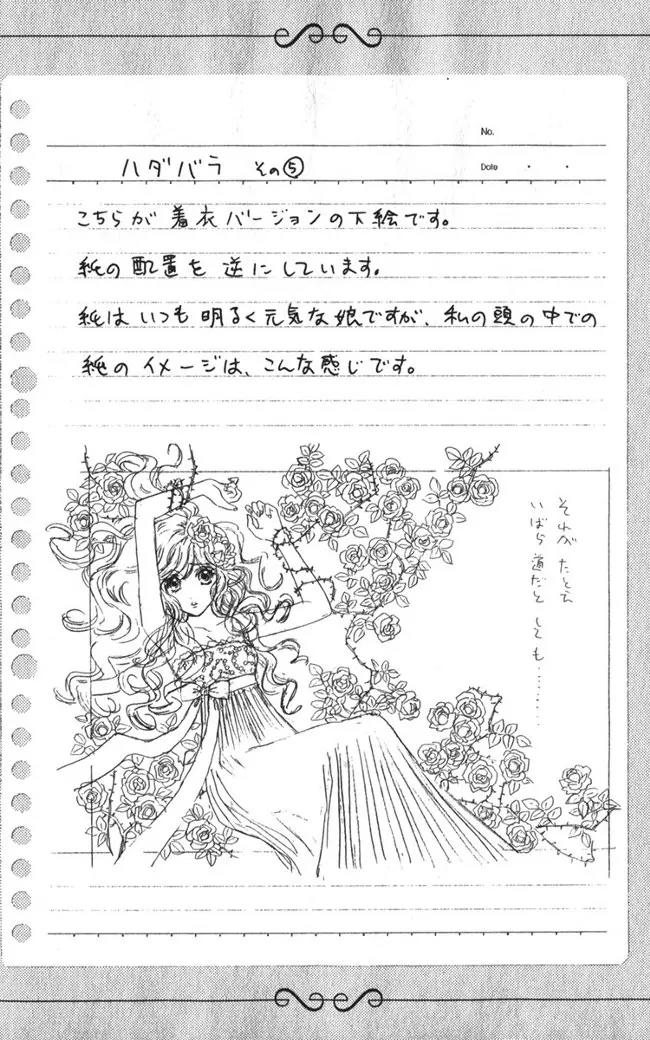 No.
ハダバラ その⑤
Date ・ ・
こちらが 着衣バージョンの下絵です。
純の 配置を 逆に しています。
純は いつも 明るく元気な娘ですが、私の頭の中での
純の イメージは、こんな感じです。
それが たとえ
いばら 道だと しても………